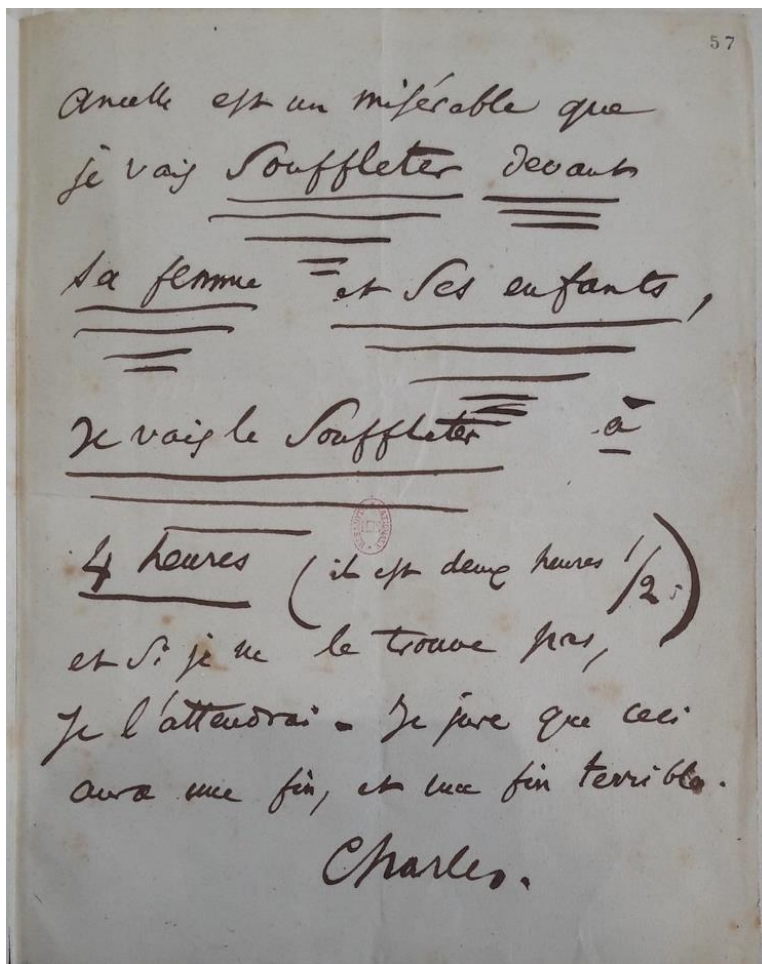 57
Ancelle est un misérable que
je vais Souffleter devant
sa femme et Ses enfants,
Je vais le Souffleter à
4 heures (il est deux heures 1/2)
et Si je ne le trouve pas,
Je l'attendrai. Je jure que ceci
aura une fin, et une fin terrible.
Charles.